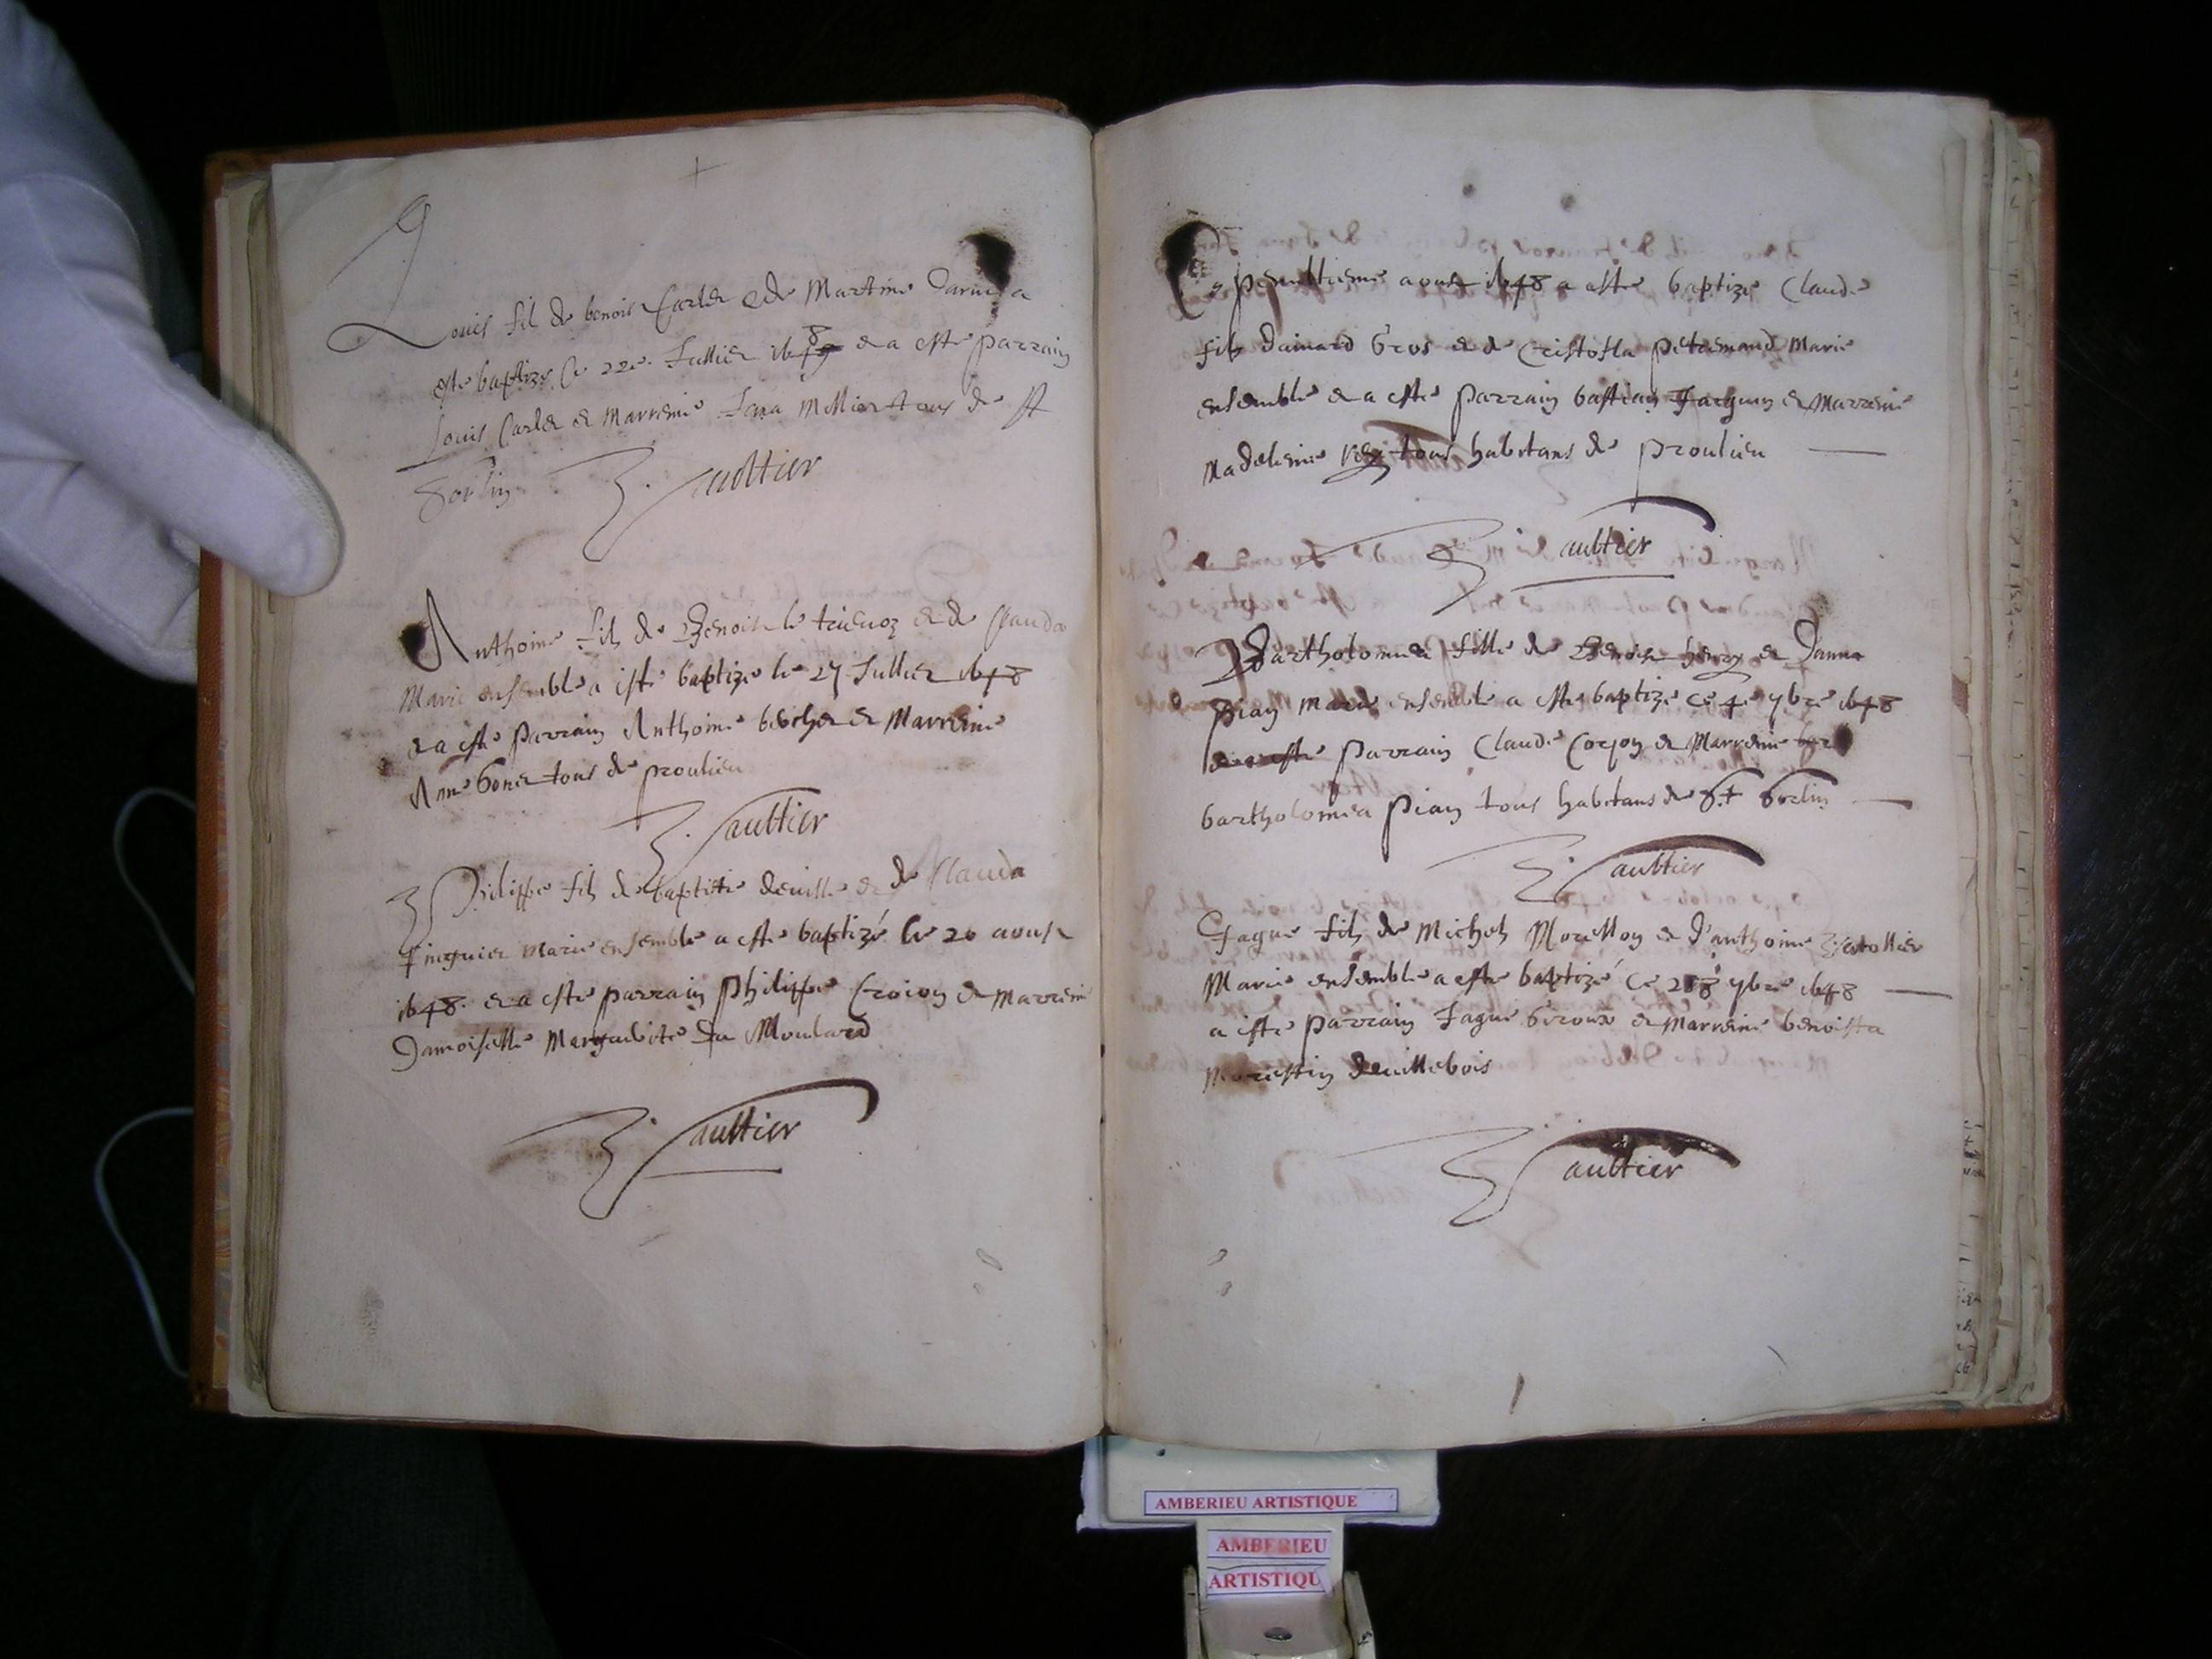 Louis fil de benoit Carlet & de Martine
este baptize le 22e Jullier 1648 et a este parrain
Louis Carlet et Marreine Jana Millier tous de St
Sorlin
Gaultier
Anthoine filz de Benoit le trienoz et de Clauda
Marie ensemble a este baptize le 27 Jullier 1648
et a este parrain Anthoine et Marreine
Anne bonet tous de proulieu
Gaultier
Philippe filz de baptiste deville et de Clauda
pinguier Marie ensemble a este baptizé le 20 aoust
1648. et a este parrain philippe Croion et Marreine
Damoiselle Marguerite du Moulard
Gaultier
Ce penultieme aoust 1648 a este baptize Claude
filz dainard Gros et de Cristofla petremand Marie
ensemble et a este parrain bastian Jacquin et Marreine
Madeleine rey tous habitans de proulieu
Gaultier
Bartholomiea fille de Benoit henry et Danna
pian marie ensemble a este baptize ce 4e 7bre 1648
et a este parrain Claude Corjon et Marreine
bartholomiea pian tous habitans de St Sorlin
Gaultier
Jaque filz de Michel Morellon et d'anthoine
Marie ensemble a este baptizé ce 7bre 1648
a este parrain Jaque Giroux et Marreine benoista
Morestin devillebois
Gaultier
AMBERIEU ARTISTIQUE
AMBERIEU
ARTISTIQU